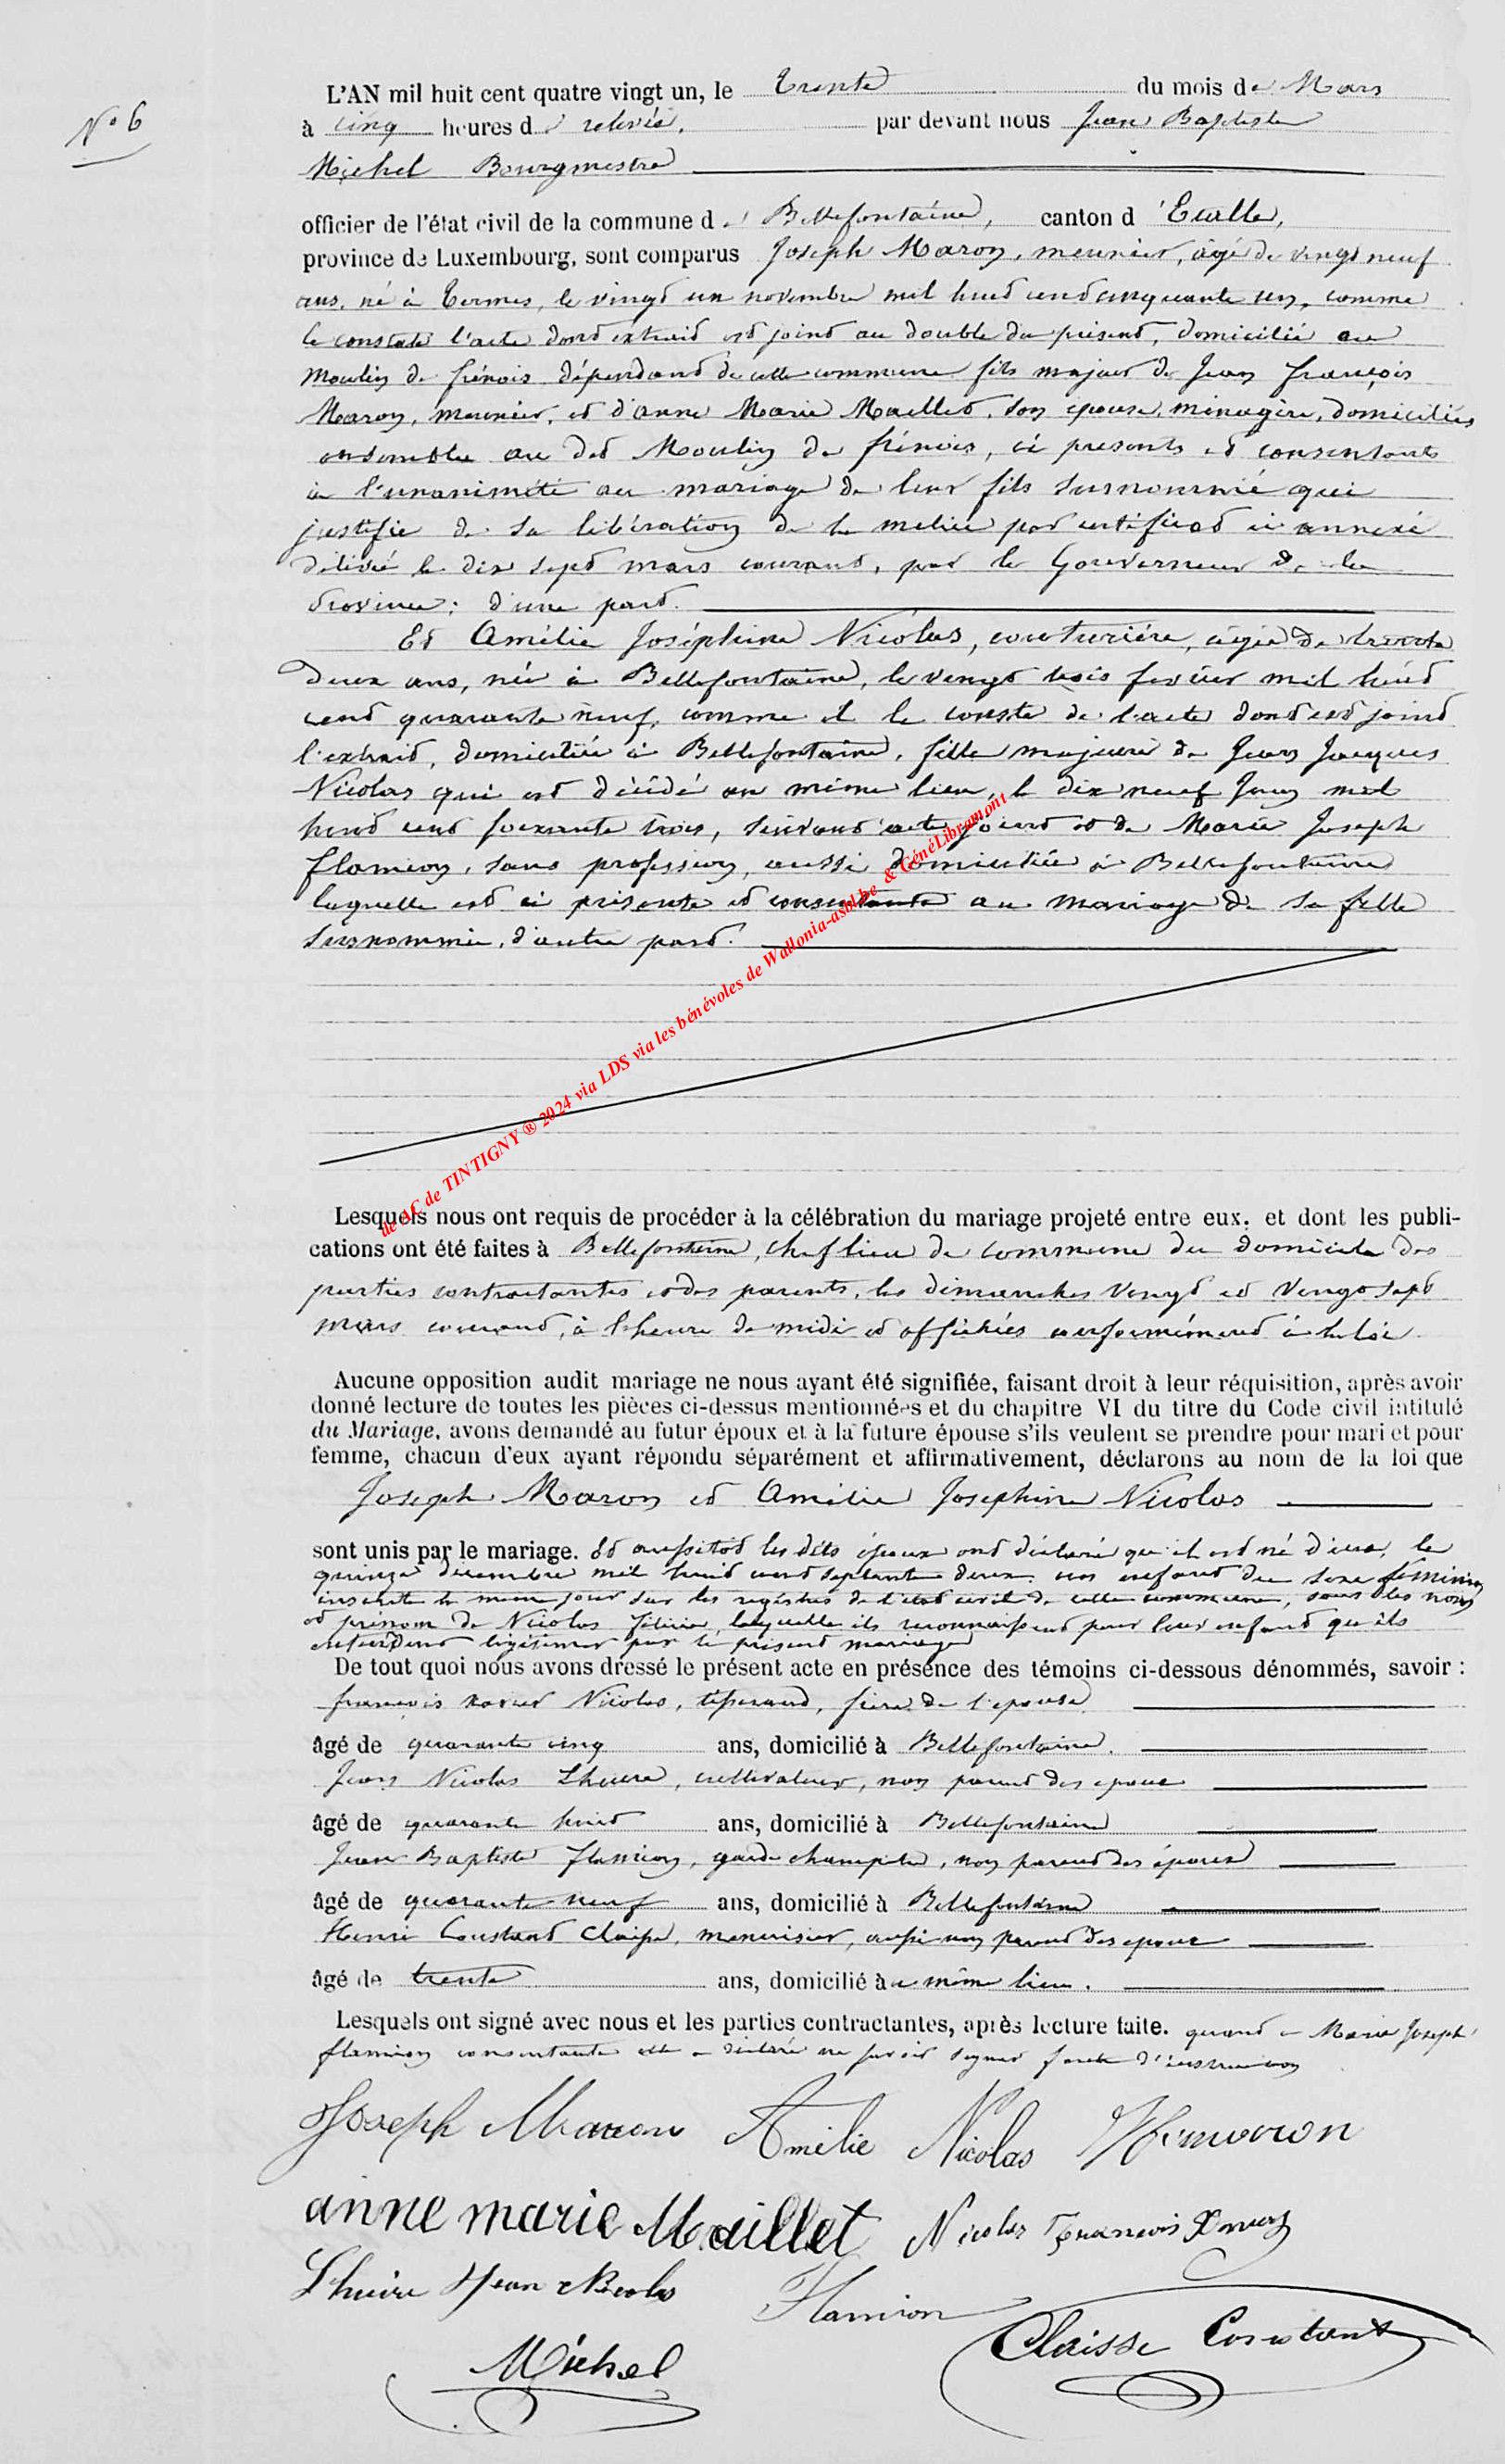 N° 6
L'AN mil huit cent quatre vingt un, le Trente du mois de Mars
à cinq heures de relevée, par devant nous Jean Baptiste
Michel Bourgmestre
officier de l'état civil de la commune de Bellefontaine, canton d'Etalle,
province de Luxembourg, sont comparus Joseph Maron, meunier, âgé de vingt neuf
ans, né à Termes, le vingt un novembre mil huit cent cinquante un, comme
le constate l'acte dont extrait est joint au double du présent, domicilié au
Moulin de frénois dépendant de cette commune fils majeur de Jean françois
Maron, meunier, et d'anne Marie Maillet, son epouse, ménagère, domiciliés
ensemble au dit Moulin de frénois, ci presents et consentants
à l'unanimité au mariage de leur fils surnommé qui
justifie de sa libération de la milice par certificat ci annexé
délivré le dix sept mars courant, par le Gouverneur de la
Province; d'une part.
Et Amélie Joséphine Nicolas, couturière, âgée de trente
deux ans, née à Bellefontaine, le vingt trois fevrier mil huit
cent quarante neuf, comme il le conste de l'acte dont est joint
l'extrait, domiciliée à Bellefontaine, fille majeure de Jean Jacques
Nicolas qui est décédé au même lieu, le dix neuf Juin mil
huit cent soixante trois, suivant acte joint et de Marie Joseph
flamion, sans profession, aussi domiciliée à Bellefontaine
laquelle est ci présente et consentante au mariage de sa fille
surnommée, d'autre part.
de AC de TINTIGNY ® 2024 via LDS via les bénévoles de Wallonia-asbl.be & GénéLibramont
Lesquels nous ont requis de procéder à la célébration du mariage projeté entre eux, et dont les publi-
cations ont été faites à Bellefontaine, chef lieu de commune du domicile des
parties contractantes et des parents, les dimanches vingt et vingt sept
mars courant, à l'heure de midi et affichées conformément à la loi.
Aucune opposition audit mariage ne nous ayant été signifiée, faisant droit à leur réquisition, après avoir
donné lecture de toutes les pièces ci-dessus mentionnées et du chapitre VI du titre du Code civil intitulé
du Mariage, avons demandé au futur époux et à la future épouse s'ils veulent se prendre pour mari et pour
femme, chacun d'eux ayant répondu séparément et affirmativement, déclarons au nom de la loi que
Joseph Maron et Amélie Josephine Nicolas
sont unis par le mariage. Et aussitôt les dits époux ont déclaré qu'il est né d'eux, le
quinze décembre mil huit cent septante deux un enfant du sexe féminin
inscrite le même jour sur les registres de l'état civil de cette commune, sous les nom
et prénom de Nicolas, laquelle ils reconnaissent pour leur enfant qu'ils
entendent légitimer par le présent mariage
De tout quoi nous avons dressé le présent acte en présence des témoins ci-dessous dénommés, savoir :
françois xavier Nicolas, tisserand, frère de l'epouse
âgé de quarante cinq ans, domicilié à Bellefontaine.
Jean Nicolas Lhuire, cultivateur, non parent des epoux
âgé de quarante huit ans, domicilié à Bellefontaine
Jean Baptiste flamion, garde champêtre, non parent des époux
âgé de quarante neuf ans, domicilié à Bellefontaine
Henri Constant Claisse, menuisier, aussi non parent des epoux
âgé de trente ans, domicilié à u même lieu.
Lesquels ont signé avec nous et les parties contractantes, après lecture faite. quant à Marie Joseph
flamion consentante elle a déclaré ne savoir signer faute d'instruction
Joseph Maron Amélie Nicolas
anne marie Maillet Nicolas François
Lhuire Jean Nicolas Flamion
Claisse Constant
Michel